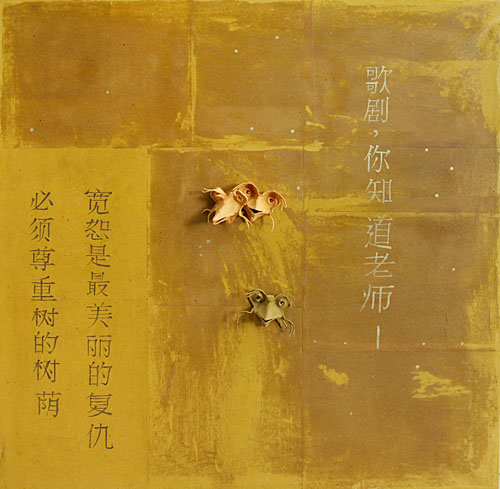 歌剧，你知道老师一
宽怨是最美丽的复仇
必须尊重树的树荫